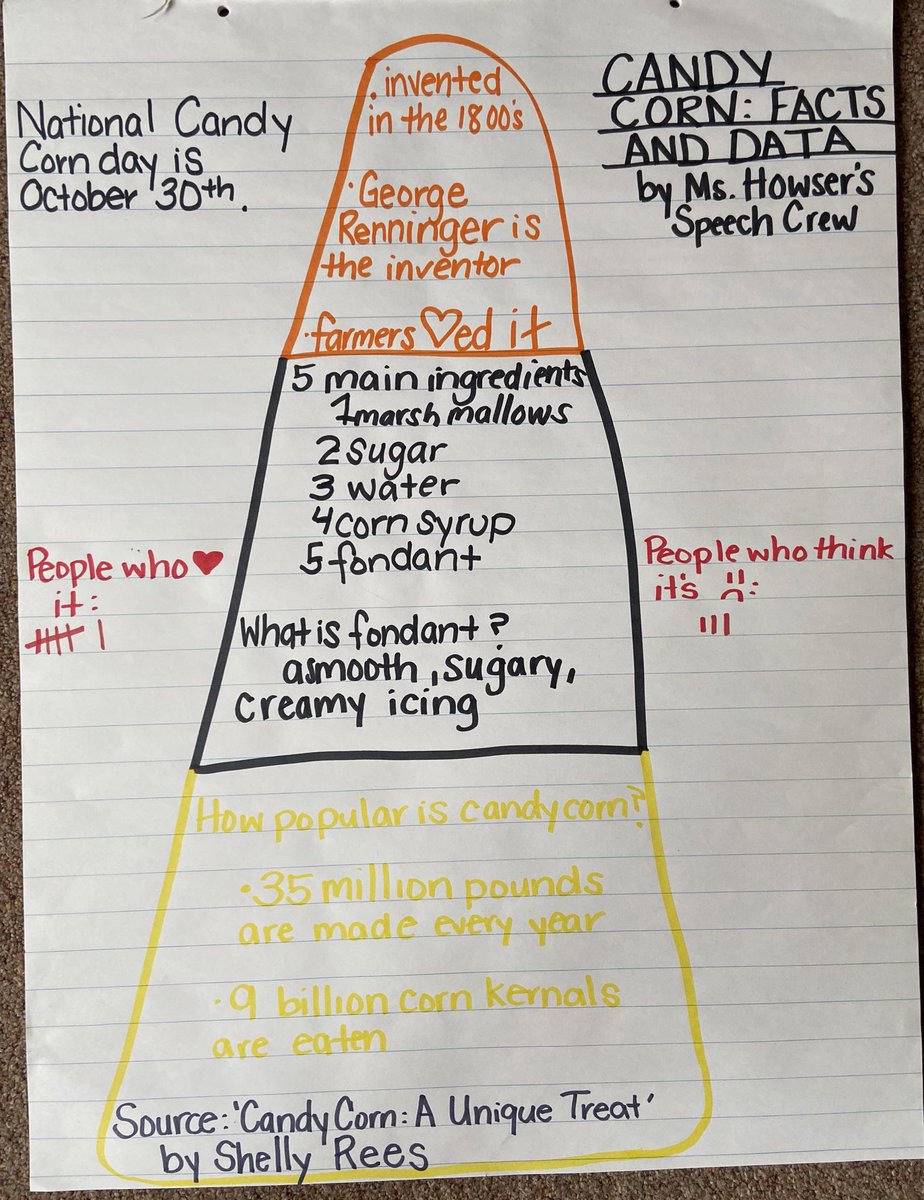 CANDY
CORN: FACTS
AND DATA
by Ms. Howser's
Speech Crew
National Candy
Corn day is
October 30th.
. invented
in the 1800's
· George
Renninger is
the inventor
· farmers ♡ed it
5 main ingredients
1 marsh mallows
2 sugar
3 water
4 corn syrup
5 fondant
What is fondant?
a smooth, sugary,
creamy icing
People who ♥
it:
𝍸 |
People who think
it's ☹:
|||
How popular is candy corn?
· 35 million pounds
are made every year
· 9 billion corn kernals
are eaten
Source: 'Candy Corn: A Unique Treat'
by Shelly Rees